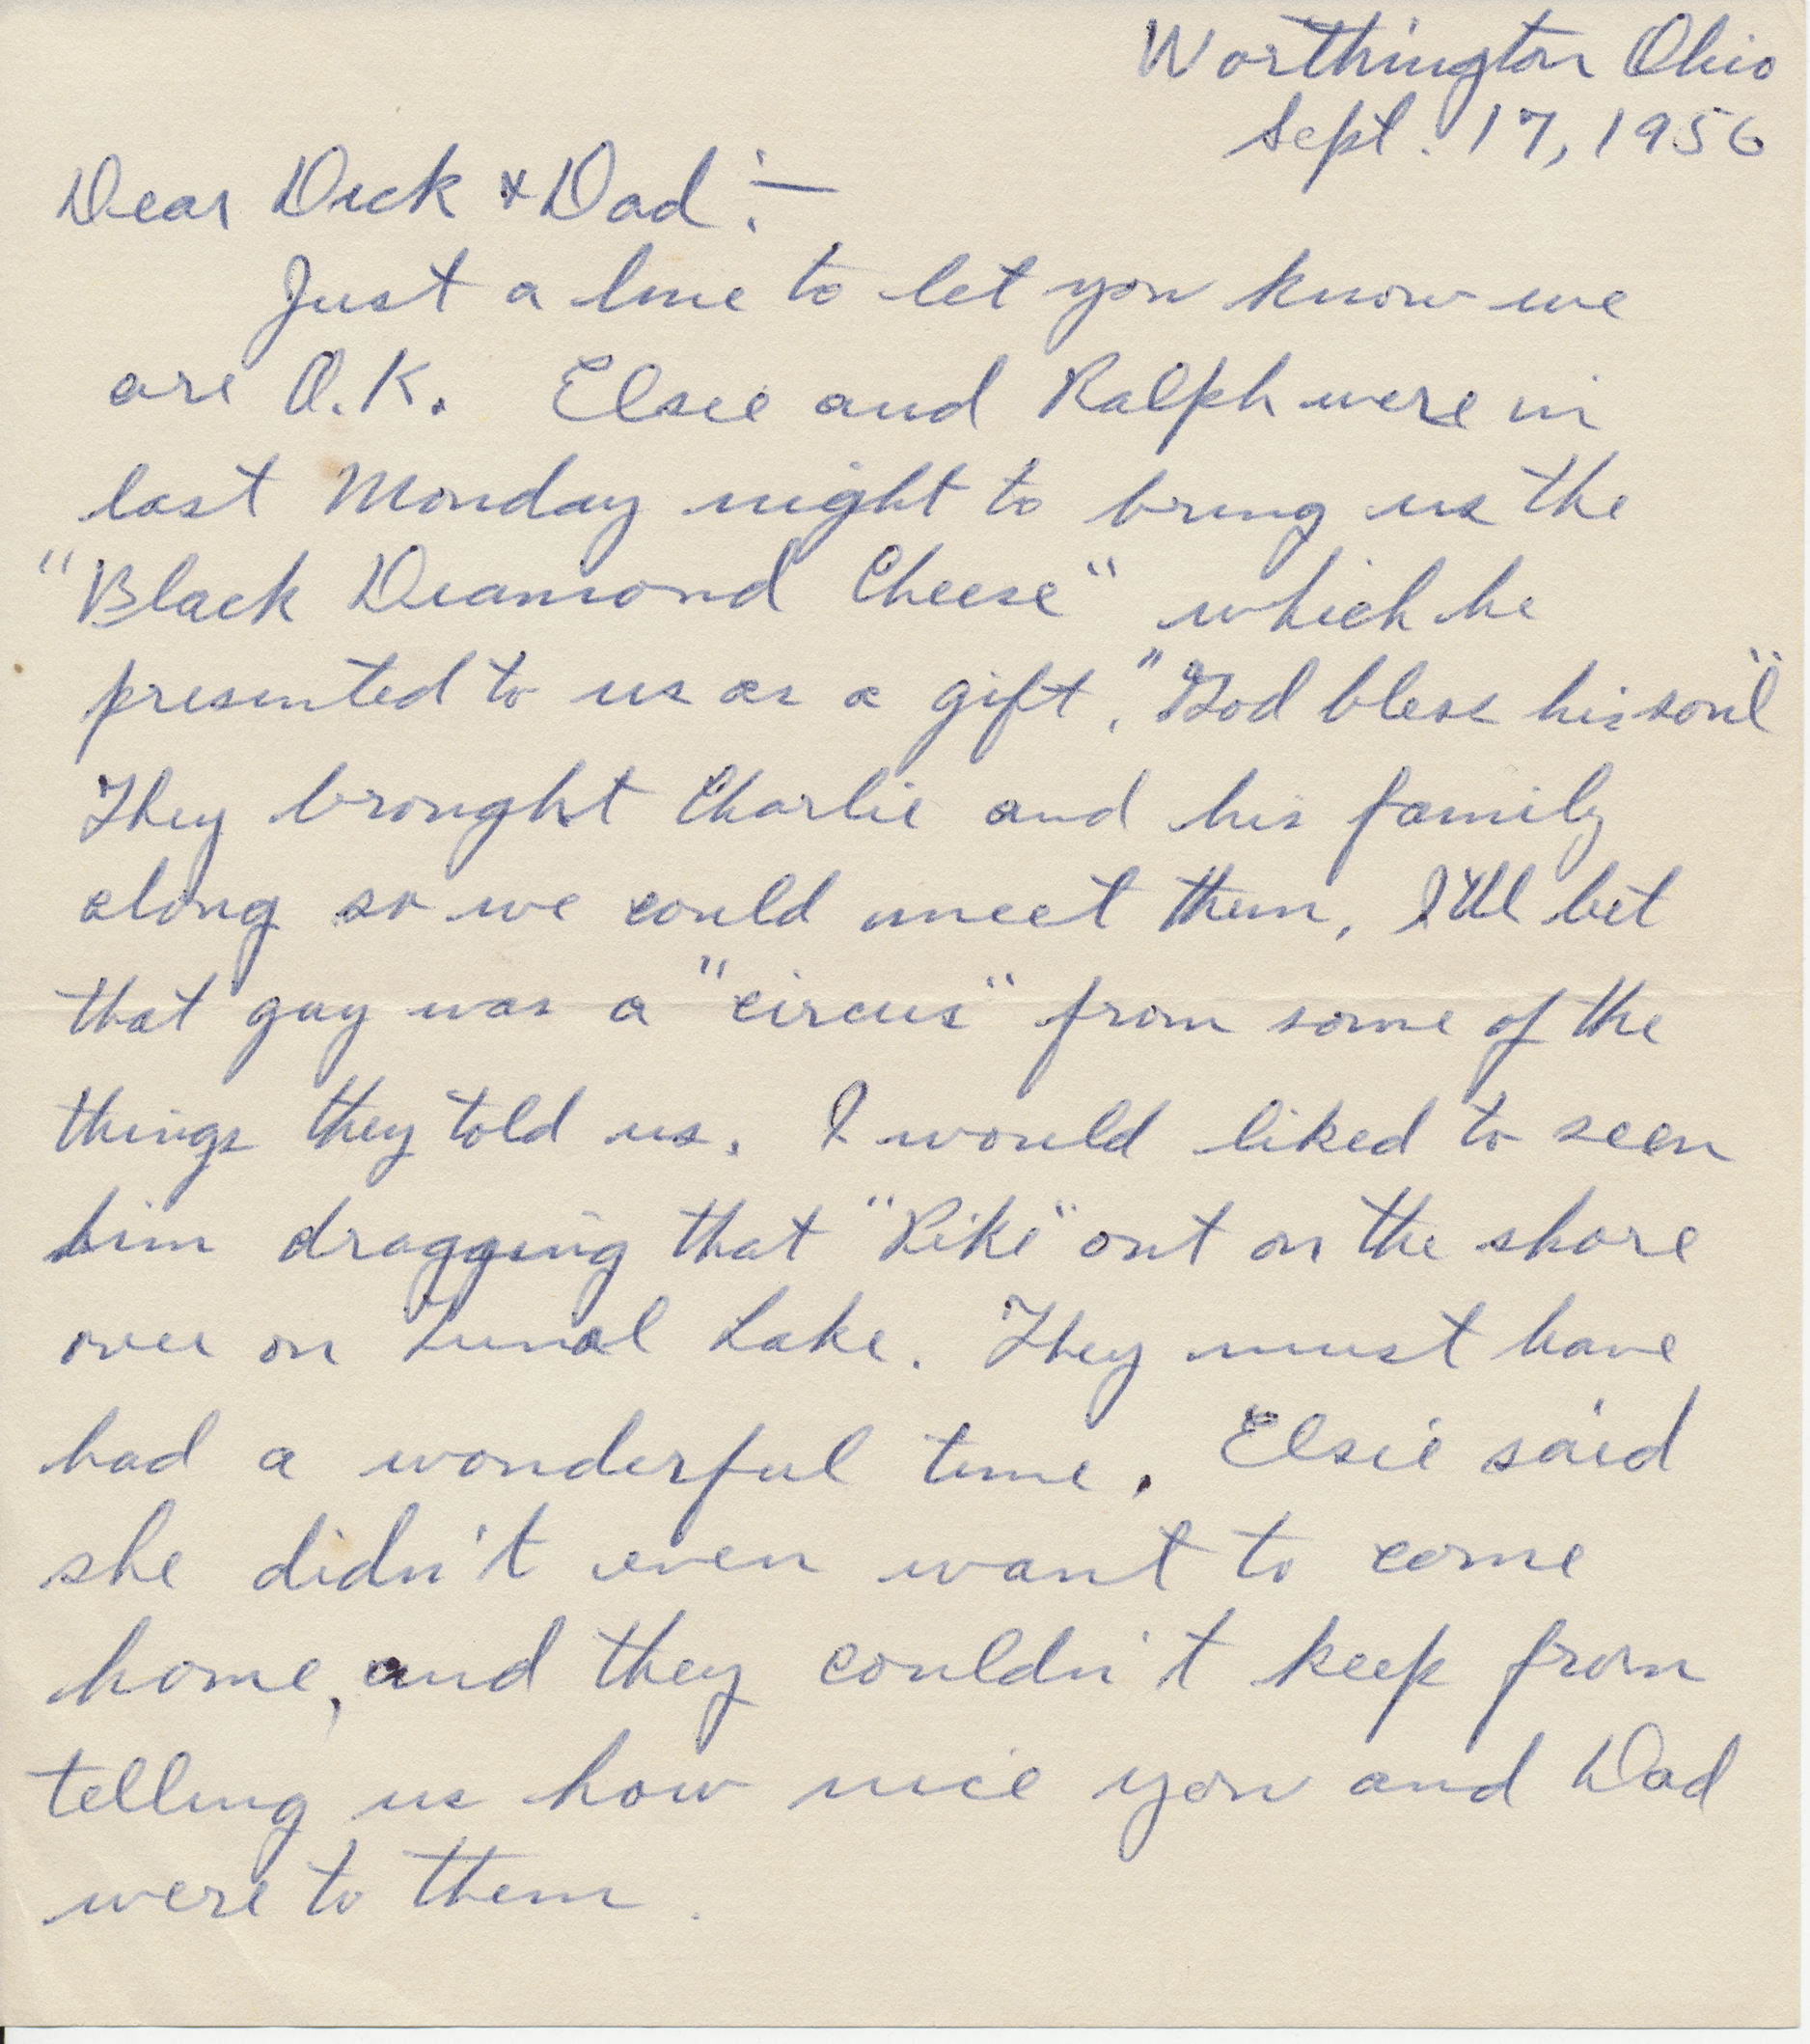 Worthington Ohio
Sept. 17, 1956
Dear Dick & Dad:—
Just a line to let you know we
are O.K. Elsie and Ralph were in
last Monday night to bring us the
"Black Diamond Cheese" which he
presented to us as a gift. "God bless his soul"
They brought Charlie and his family
along so we could meet them, I'll bet
that guy was a "circus" from some of the
things they told us. I would liked to seen
him dragging that "Pike" out on the shore
over on Lake. They must have
had a wonderful time. Elsie said
she didn't even want to come
home, and they couldn't keep from
telling us how nice you and Dad
were to them.